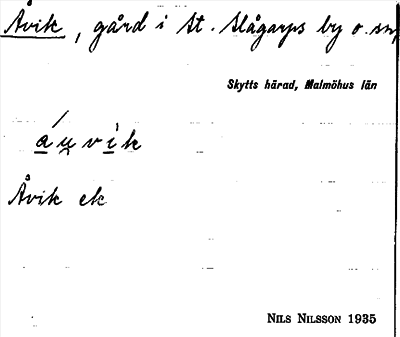 Åvik, gård i St. Slågarps by o. sn,
Skytts härad, Malmöhus län
áu̯vìk
Åvik ek
NILS NILSSON 1935